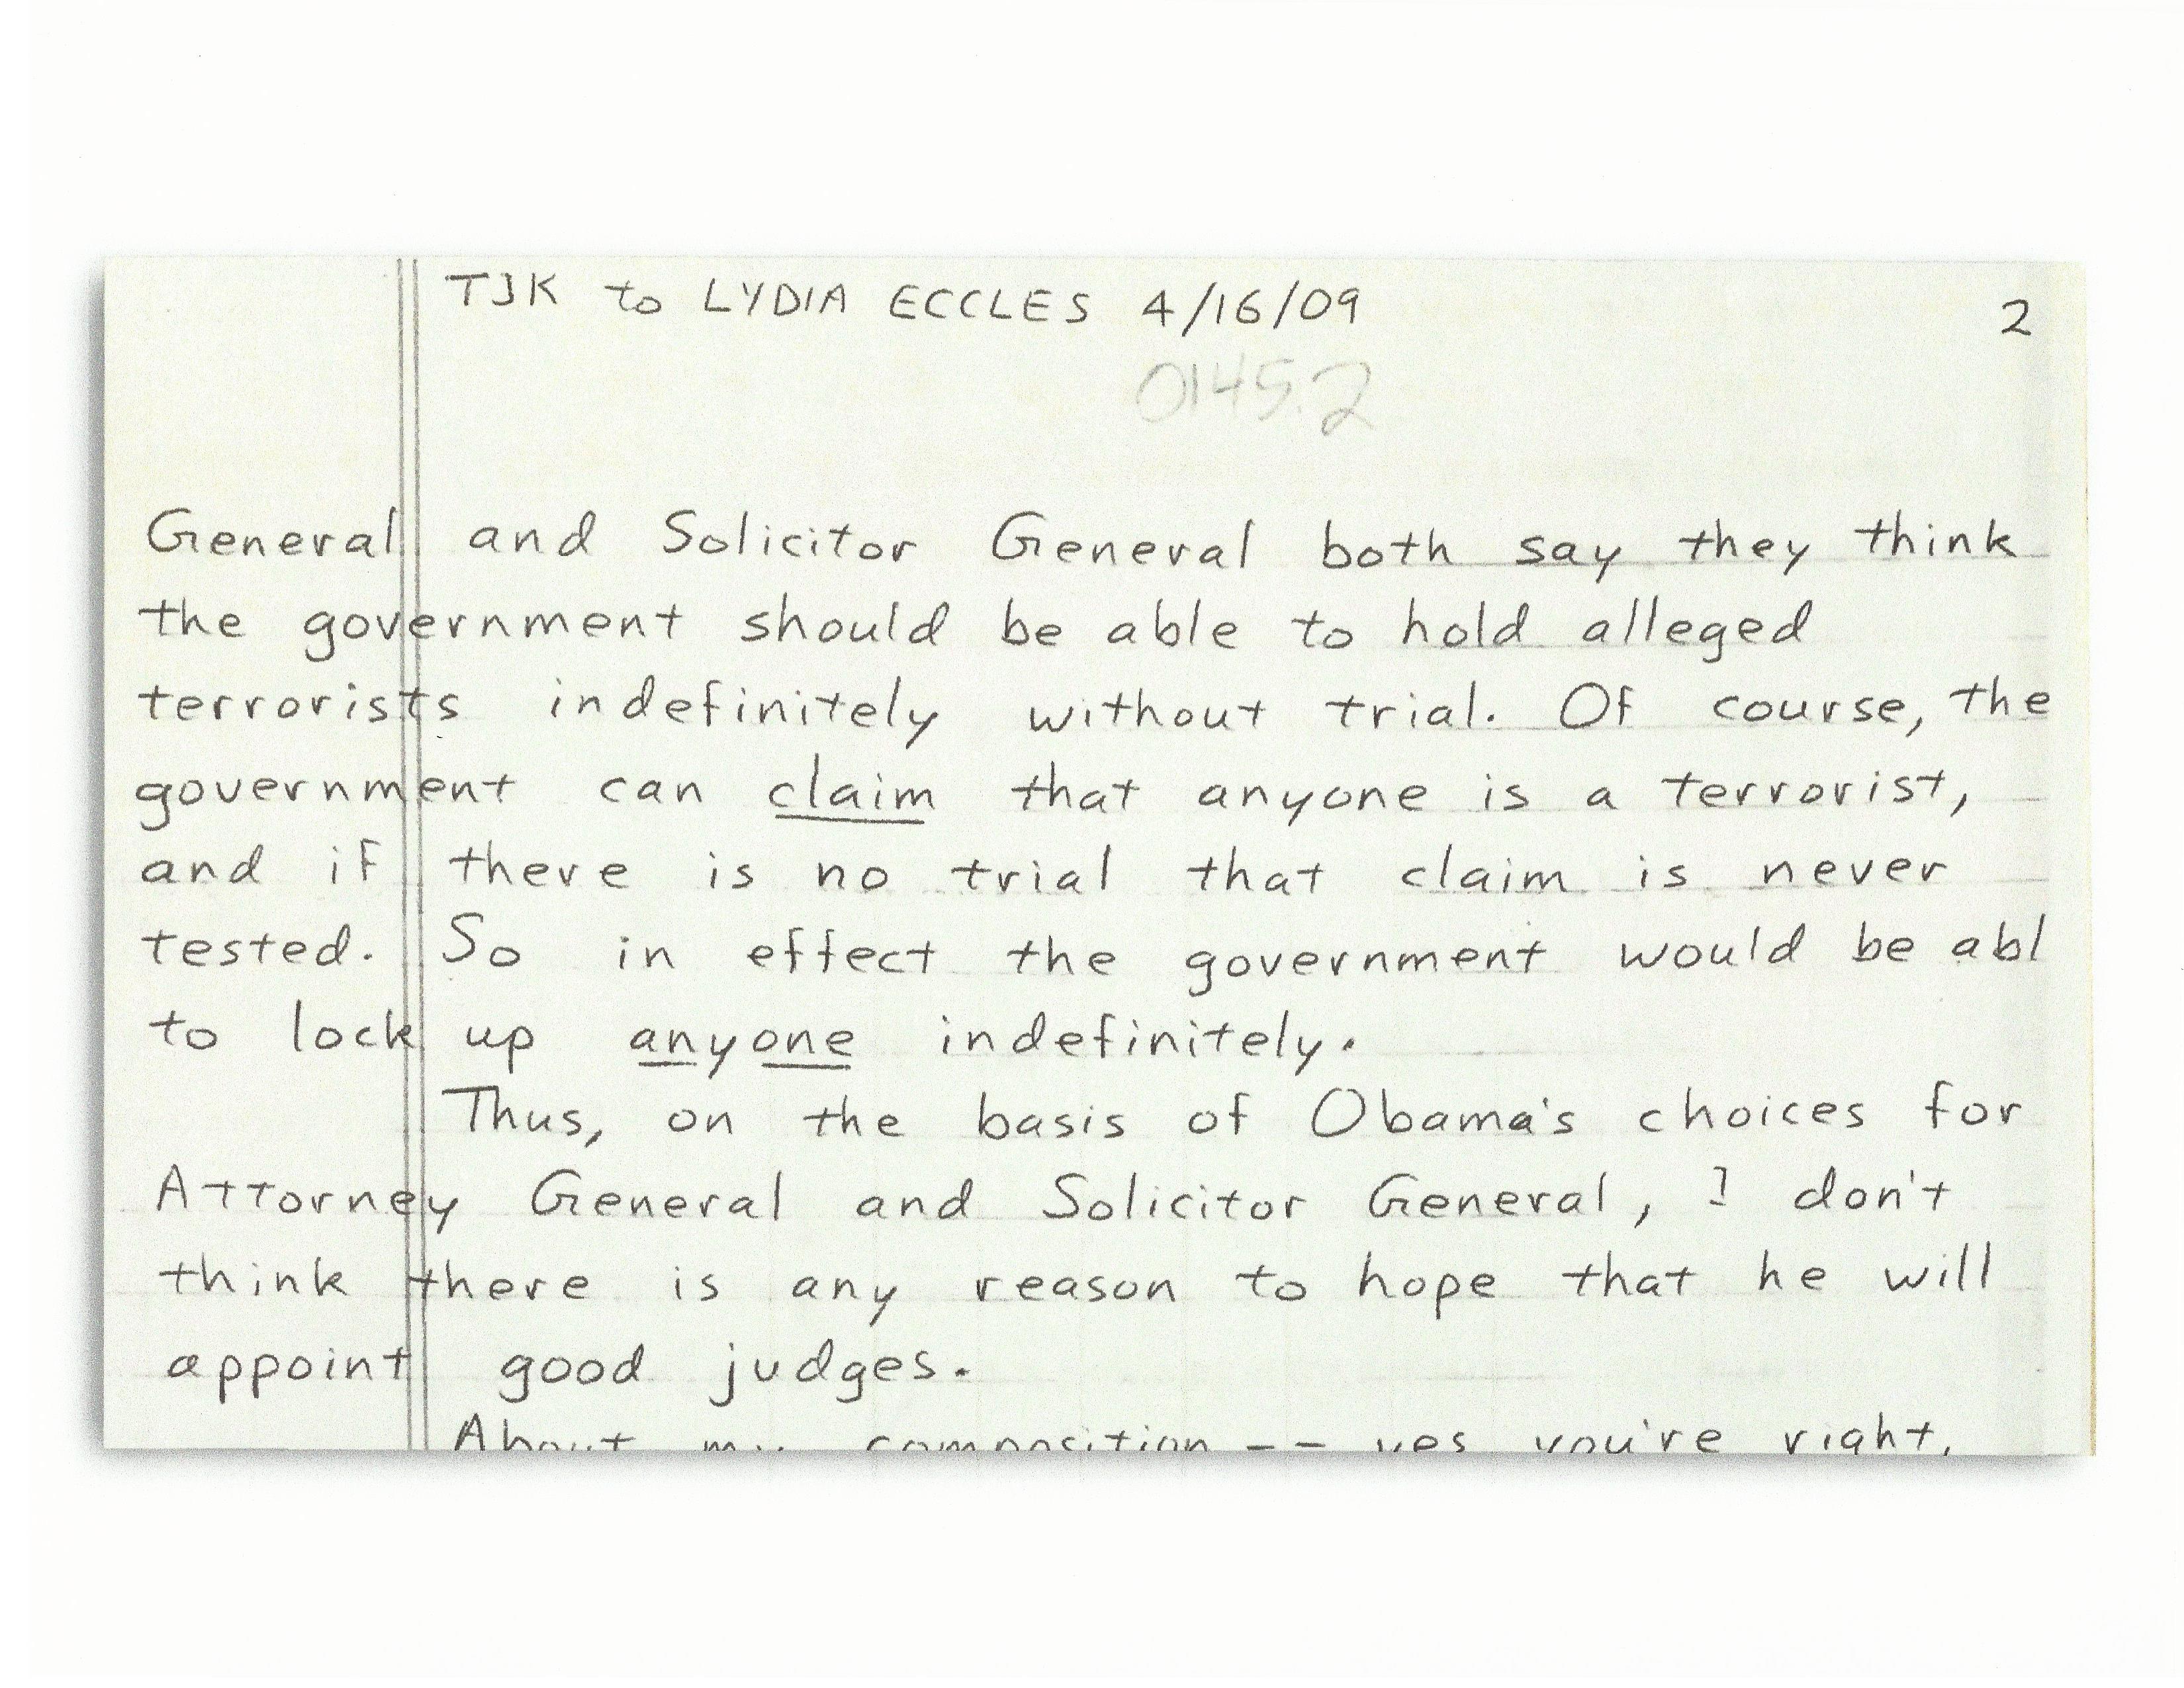 TJK to LYDIA ECCLES 4/16/09 2
0145.2
General and Solicitor General both say they think
the government should be able to hold alleged
terrorists indefinitely without trial. Of course, the
government can claim that anyone is a terrorist,
and if there is no trial that claim is never
tested. So in effect the government would be abl
to lock up anyone indefinitely.
Thus, on the basis of Obama's choices for
Attorney General and Solicitor General, I don't
think there is any reason to hope that he will
appoint good judges.
About my composition -- yes you're right,